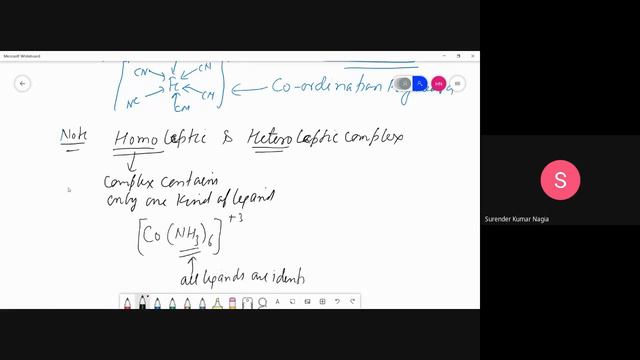 Microsoft Whiteboard
CN CN
Fe
NC CN
CN
Co-ordination
MN
Note Homoleptic & Heteroleptic complex
complex contain
only one kind of ligand
[Co(NH3)6]+3
all ligands are identi
S
Surender Kumar Nagia